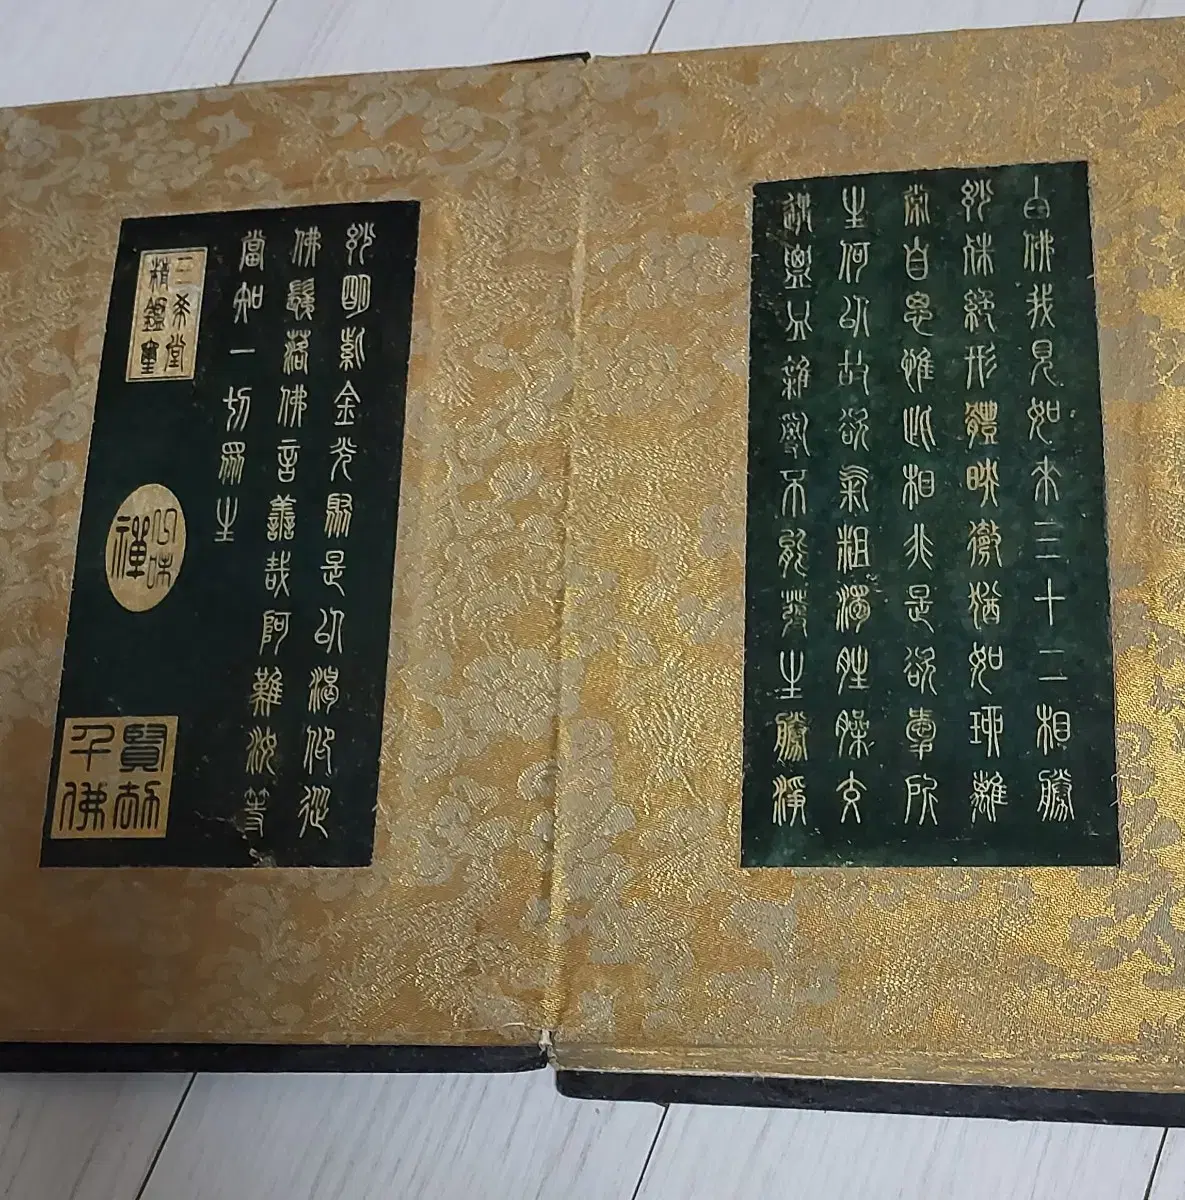 白佛我見如來三十二相勝
妙殊絕形體映徹猶如琉璃
常自思惟此相非是欲愛所
生何以故欲氣粗濁腥臊交
遘膿血雜亂不能發生勝淨
妙明紫金光聚是以渴仰從
佛落佛言善哉阿難汝等
當知一切眾生
三希堂
精鑑璽
味
禪
賢劫
千佛